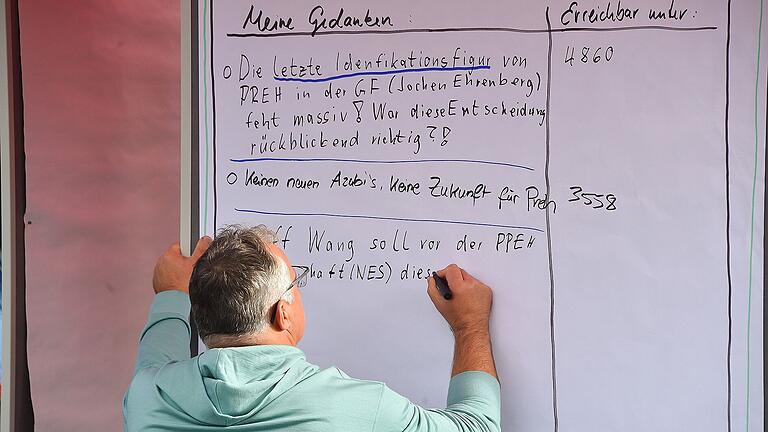 Meine Gedanken : Erreichbar unter :
o Die letzte Idenfikationsfigur von 4860
PREH in der GF (Jochen Ehrenberg)
fehlt massiv! War diese Entscheidung
rückblickend richtig?!
o Keinen neuen Azubi's, keine Zukunft für Preh 3558
Wang soll vor der PREH
haft (NES) dies